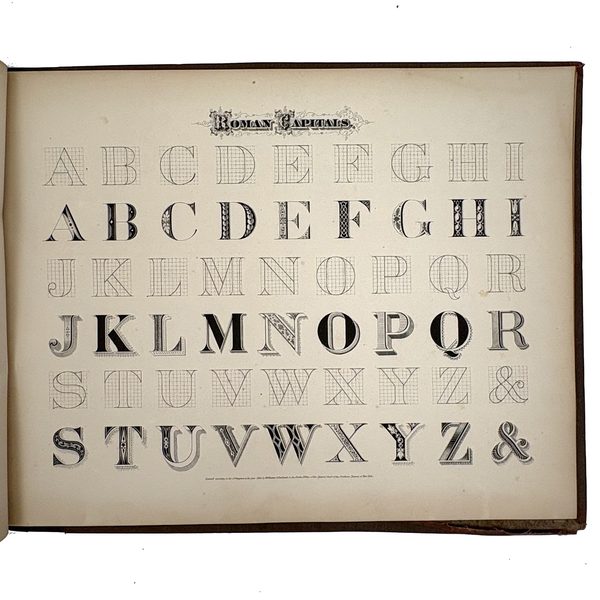 ROMAN CAPITALS.
A B C D E F G H I
A B C D E F G H I
J K L M N O P Q R
J K L M N O P Q R
S T U V W X Y Z &
S T U V W X Y Z &